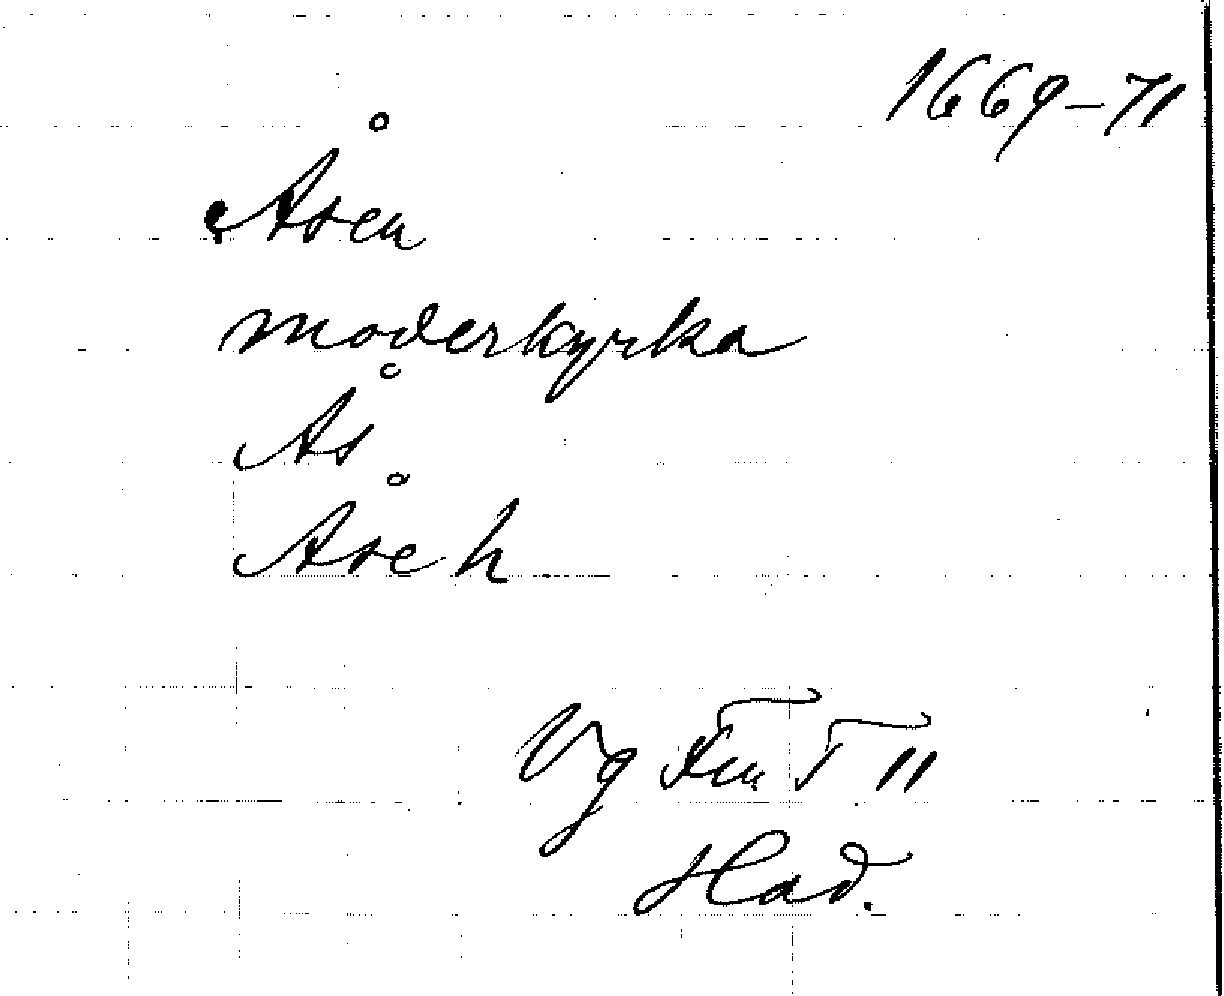 1669-71
Åsen
moderkyrka
Ås
Åse h
Vg Fru T II
Had.